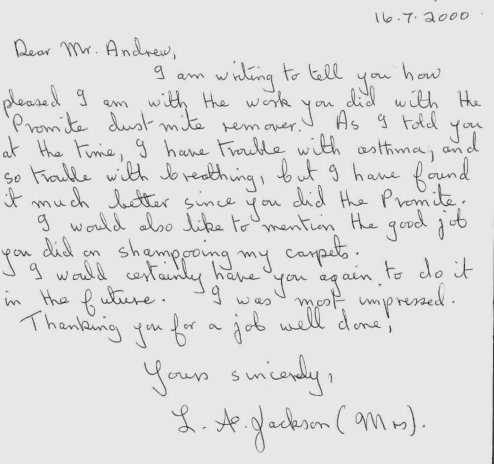 16.7.2000
Dear Mr. Andrew,
I am writing to tell you how
pleased I am with the work you did with the
Promite dust mite remover. As I told you
at the time, I have trouble with asthma, and
so trouble with breathing, but I have found
it much better since you did the Promite.
I would also like to mention the good job
you did on shampooing my carpets.
I would certainly have you again to do it
in the future. I was most impressed.
Thanking you for a job well done,
Yours sincerely,
L. A. Jackson (Mrs).